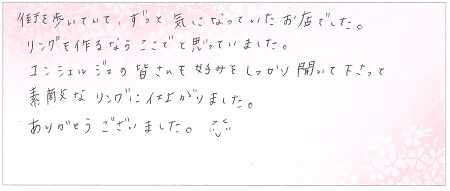 街を歩いていて、ずっと気になっていたお店でした。
リングを作るならここでと思っていました。
コンシェルジュの皆さんも好みをしっかり聞いて下さって
素敵なリングに仕上がりました。
ありがとうございました。